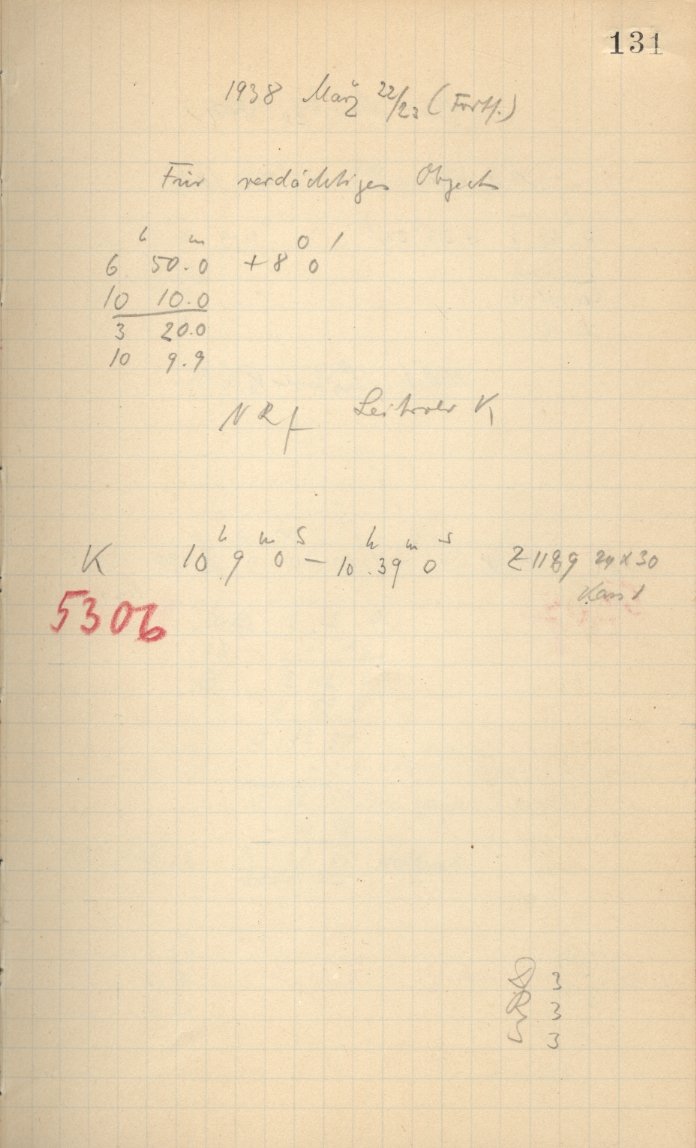 131
1938 März 22/23 (Forts.)
Für verdächtiges Object
h m 0 /
6 50.0 +8 0
10 10.0
3 20.0
10 9.9
K 10 h 9 m 0 s – 10 h 39 m 0 s Z 1189 24 x 30
5306
3
R 3
3